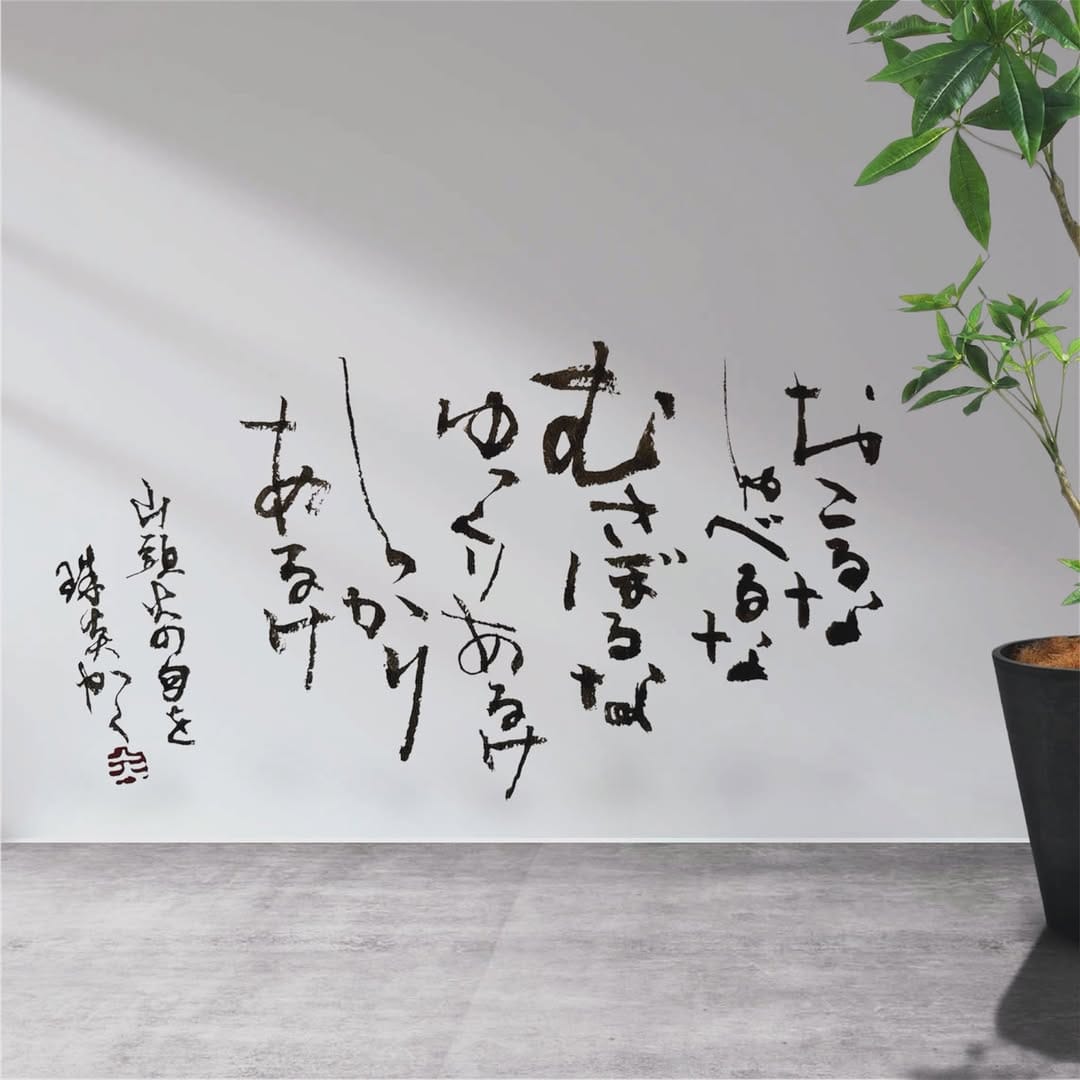 おこるな
しゃべるな
むさぼるな
ゆっくりあるけ
しっかり
あるけ
山頭火の句を
珠炎かく